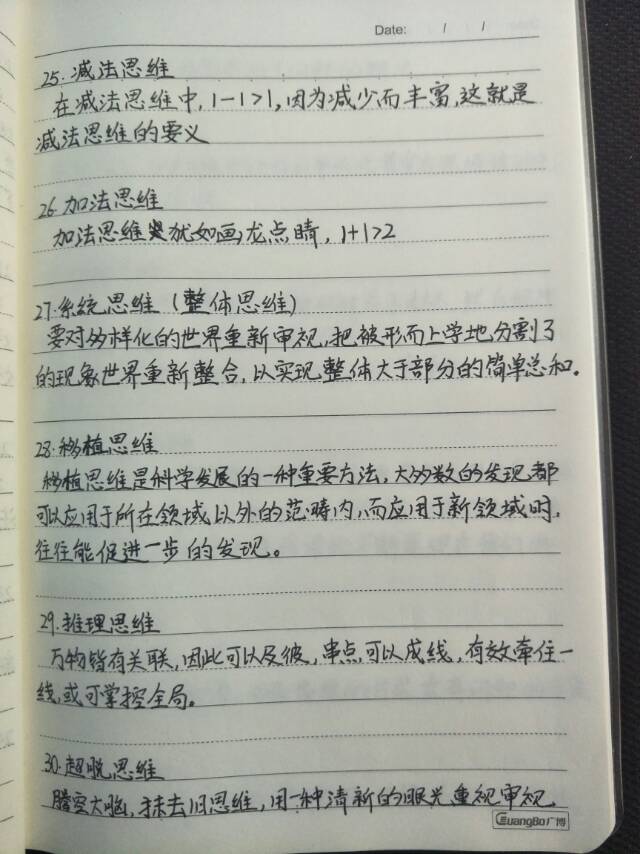 Date: / /
25.减法思维
在减法思维中,1-1>1,因为减少而丰富,这就是
减法思维的要义
26.加法思维
加法思维犹如画龙点睛,1+1>2
27.系统思维(整体思维)
要对多样化的世界重新审视,把被形而上学地分割了
的现象世界重新整合,以实现整体大于部分的简单总和。
28.移植思维
移植思维是科学发展的一种重要方法,大多数的发现都
可以应用于所在领域以外的范畴内,而应用于新领域时,
往往能促进一步的发现。
29.推理思维
万物皆有关联,因此可以及彼,串点可以成线,有效牵住一
线,或可掌控全局。
30.超脱思维
腾空大脑,抹去旧思维,用一种清新的眼光重视审视
GuangBo广博